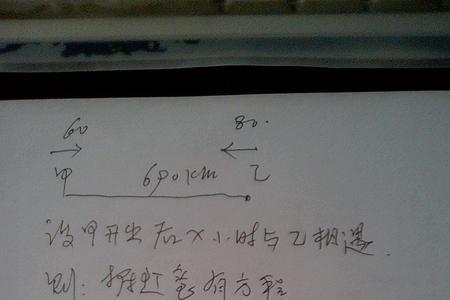 60 80.
甲 690km 乙
设甲开出后x小时与乙相遇.
则: 有方程